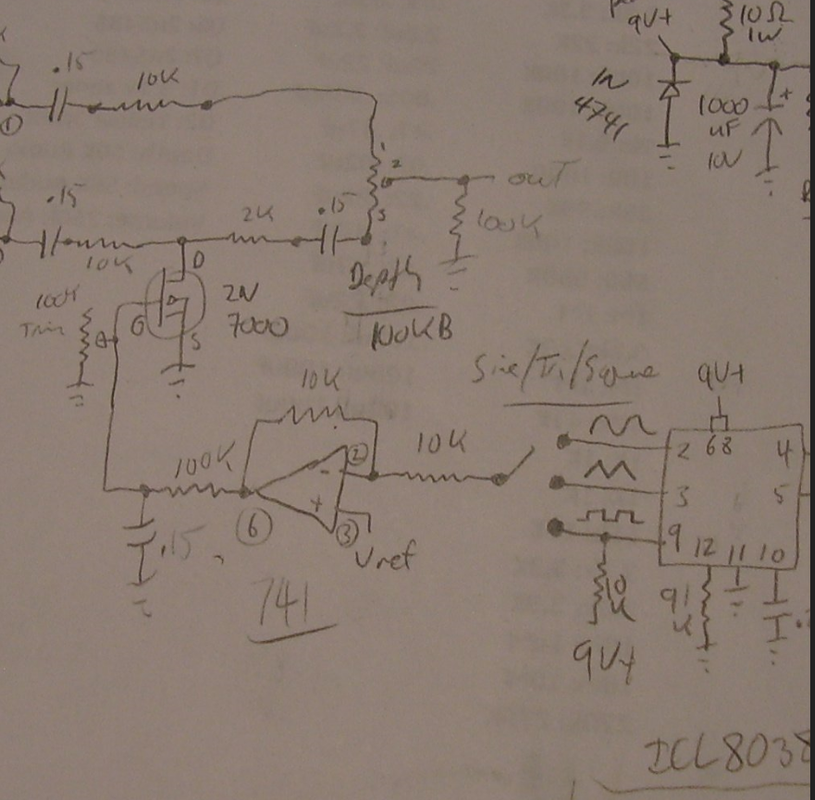 9V+
10Ω
1W
.15
10K
1N
4741
1000
uF
10V
+
①
1
2
3
out
.15
10K
2K
.15
100K
D
G
S
2N
7000
Depth
100KB
100K
Trim
10K
Sine/Tri/Square
9V+
100K
②
-
+
10K
⑥
③
Vref
.15
741
2
68
4
3
5
9
12
11
10
10
K
91
K
9V+
ICL8038